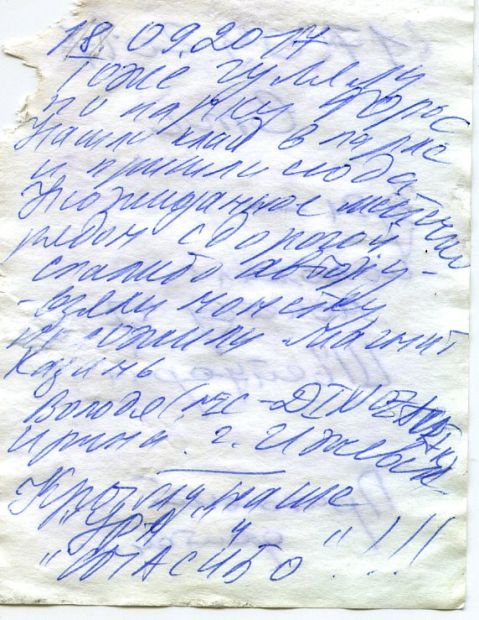 18.09.2017
Тоже гуляли
по парку Форос
Нашли клад в парке
и пришли сюда
Неожиданное
рядом с дорогой
спасибо автору -
- взяли монетку
магнит
Казань
Володя (
Ирина. г. Ижевск
наше
"УРА" и
"СПАСИБО"!!!